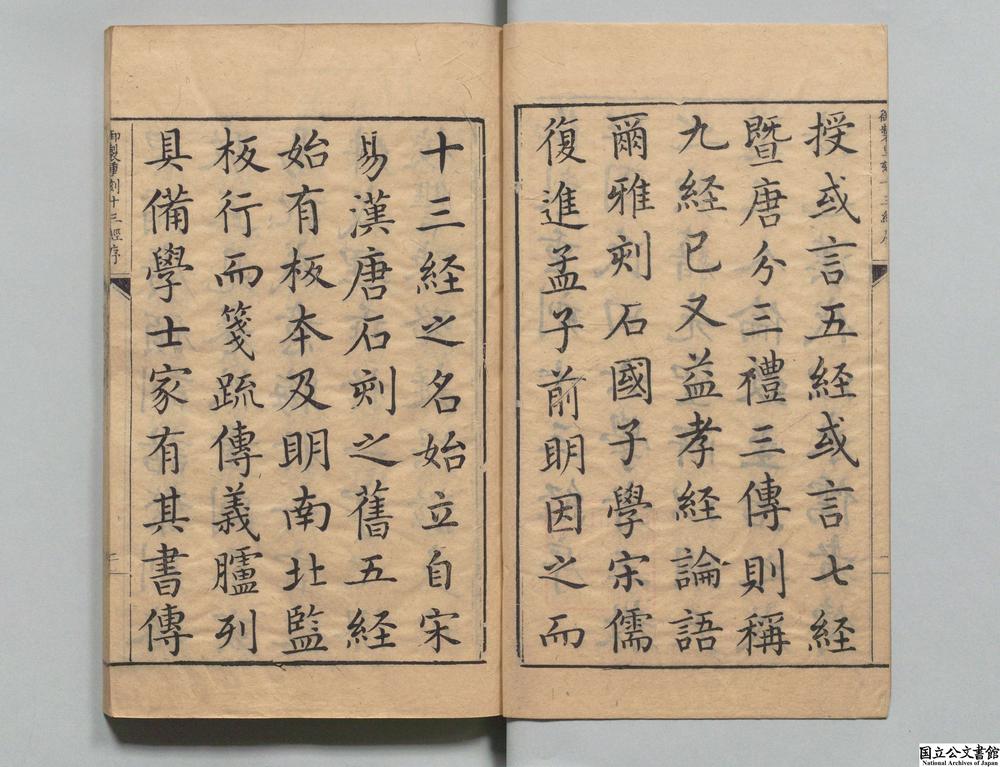 授或言五経或言七経
暨唐分三禮三傳則稱
九経已又益孝経論語
爾雅刻石國子學宋儒
復進孟子前明因之而
十三経之名始立自宋
易漢唐石刻之舊五経
始有板本及明南北監
板行而箋疏傳義臚列
具備學士家有其書傳
御製重刻十三經序
国立公文書館
National Archives of Japan